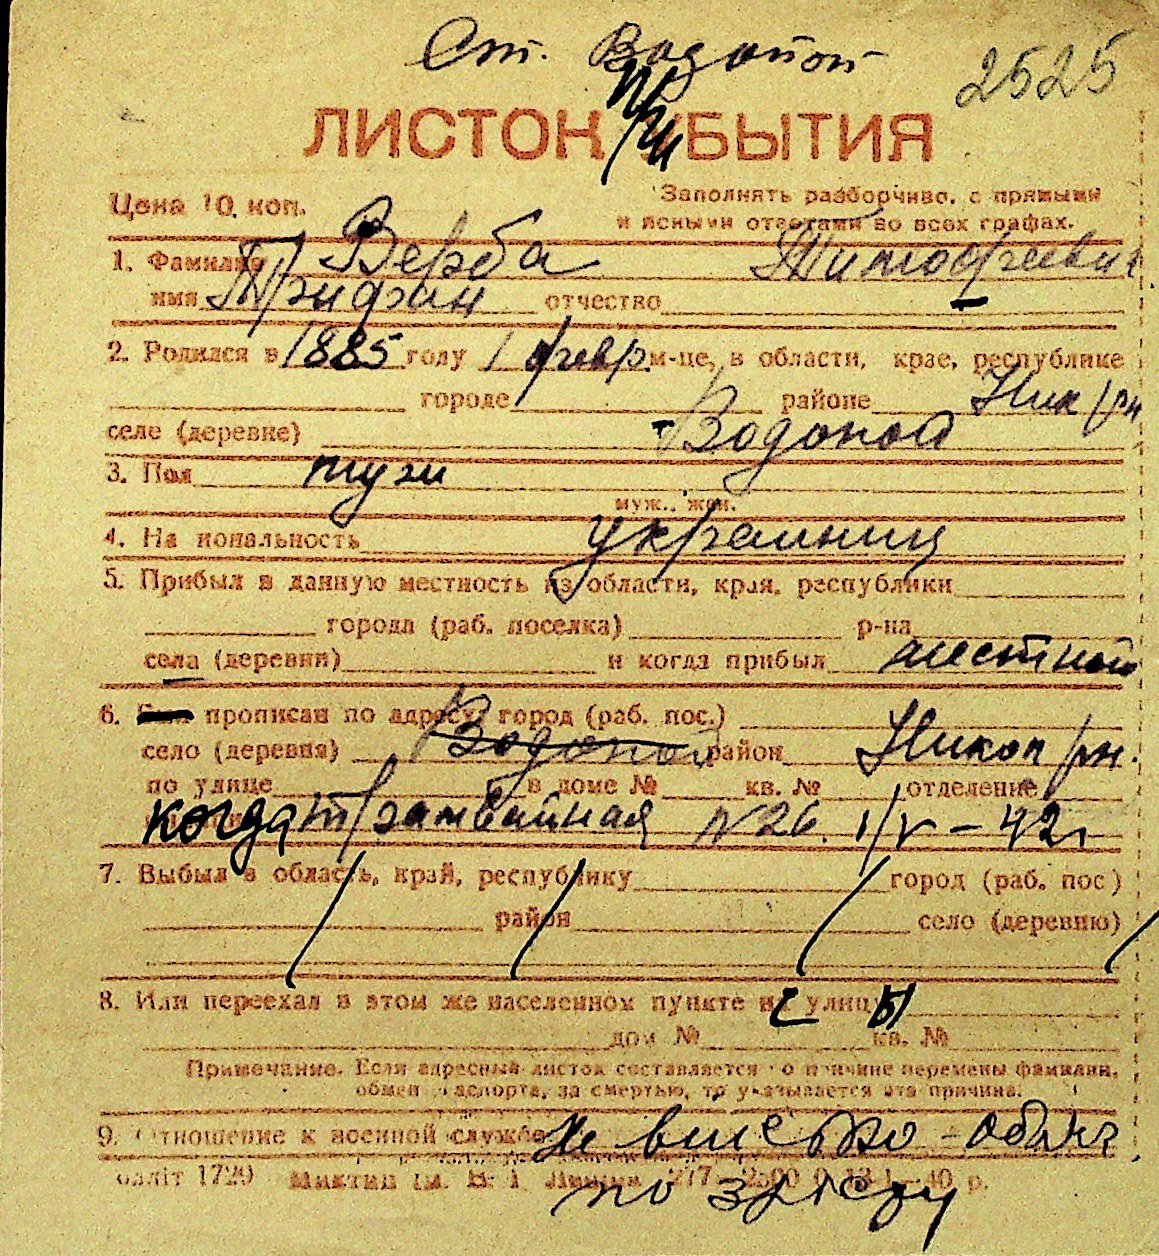 Ст. Водопой
2525
ЛИСТОК ПРИБЫТИЯ
Цена 10 коп.
Заполнять разборчиво, с прямыми
и ясными ответами во всех графах.
1. Фамилия Верба Тимофеевич
имя Трифон отчество
2. Родился в 1885 году 1 февр. м-це, в области, крае, республике
городе районе Ник р/н
селе (деревне) Водопой
3. Пол муж
муж., жен.
4. На иональность украинец
5. Прибыл в данную местность из области, края, республики
города (раб. поселка) р-на
села (деревни) и когда прибыл местный
6. прописан по адресу: город (раб. пос.)
село (деревня) Водопой район Никол р/н.
по улице в доме № кв. № отделение
когда трамвайная №26. 1/V-42г
7. Выбыл в область, край, республику город (раб. пос)
район село (деревню)
8. Или переехал в этом же населенном пункте с улицы
дом № кв. №
Примечание. Если адресный листок составляется по причине перемены фамилии,
обмен паспорта, за смертью, то указывается эта причина.
9. Отношение к военной службе
1729 40 р.
по